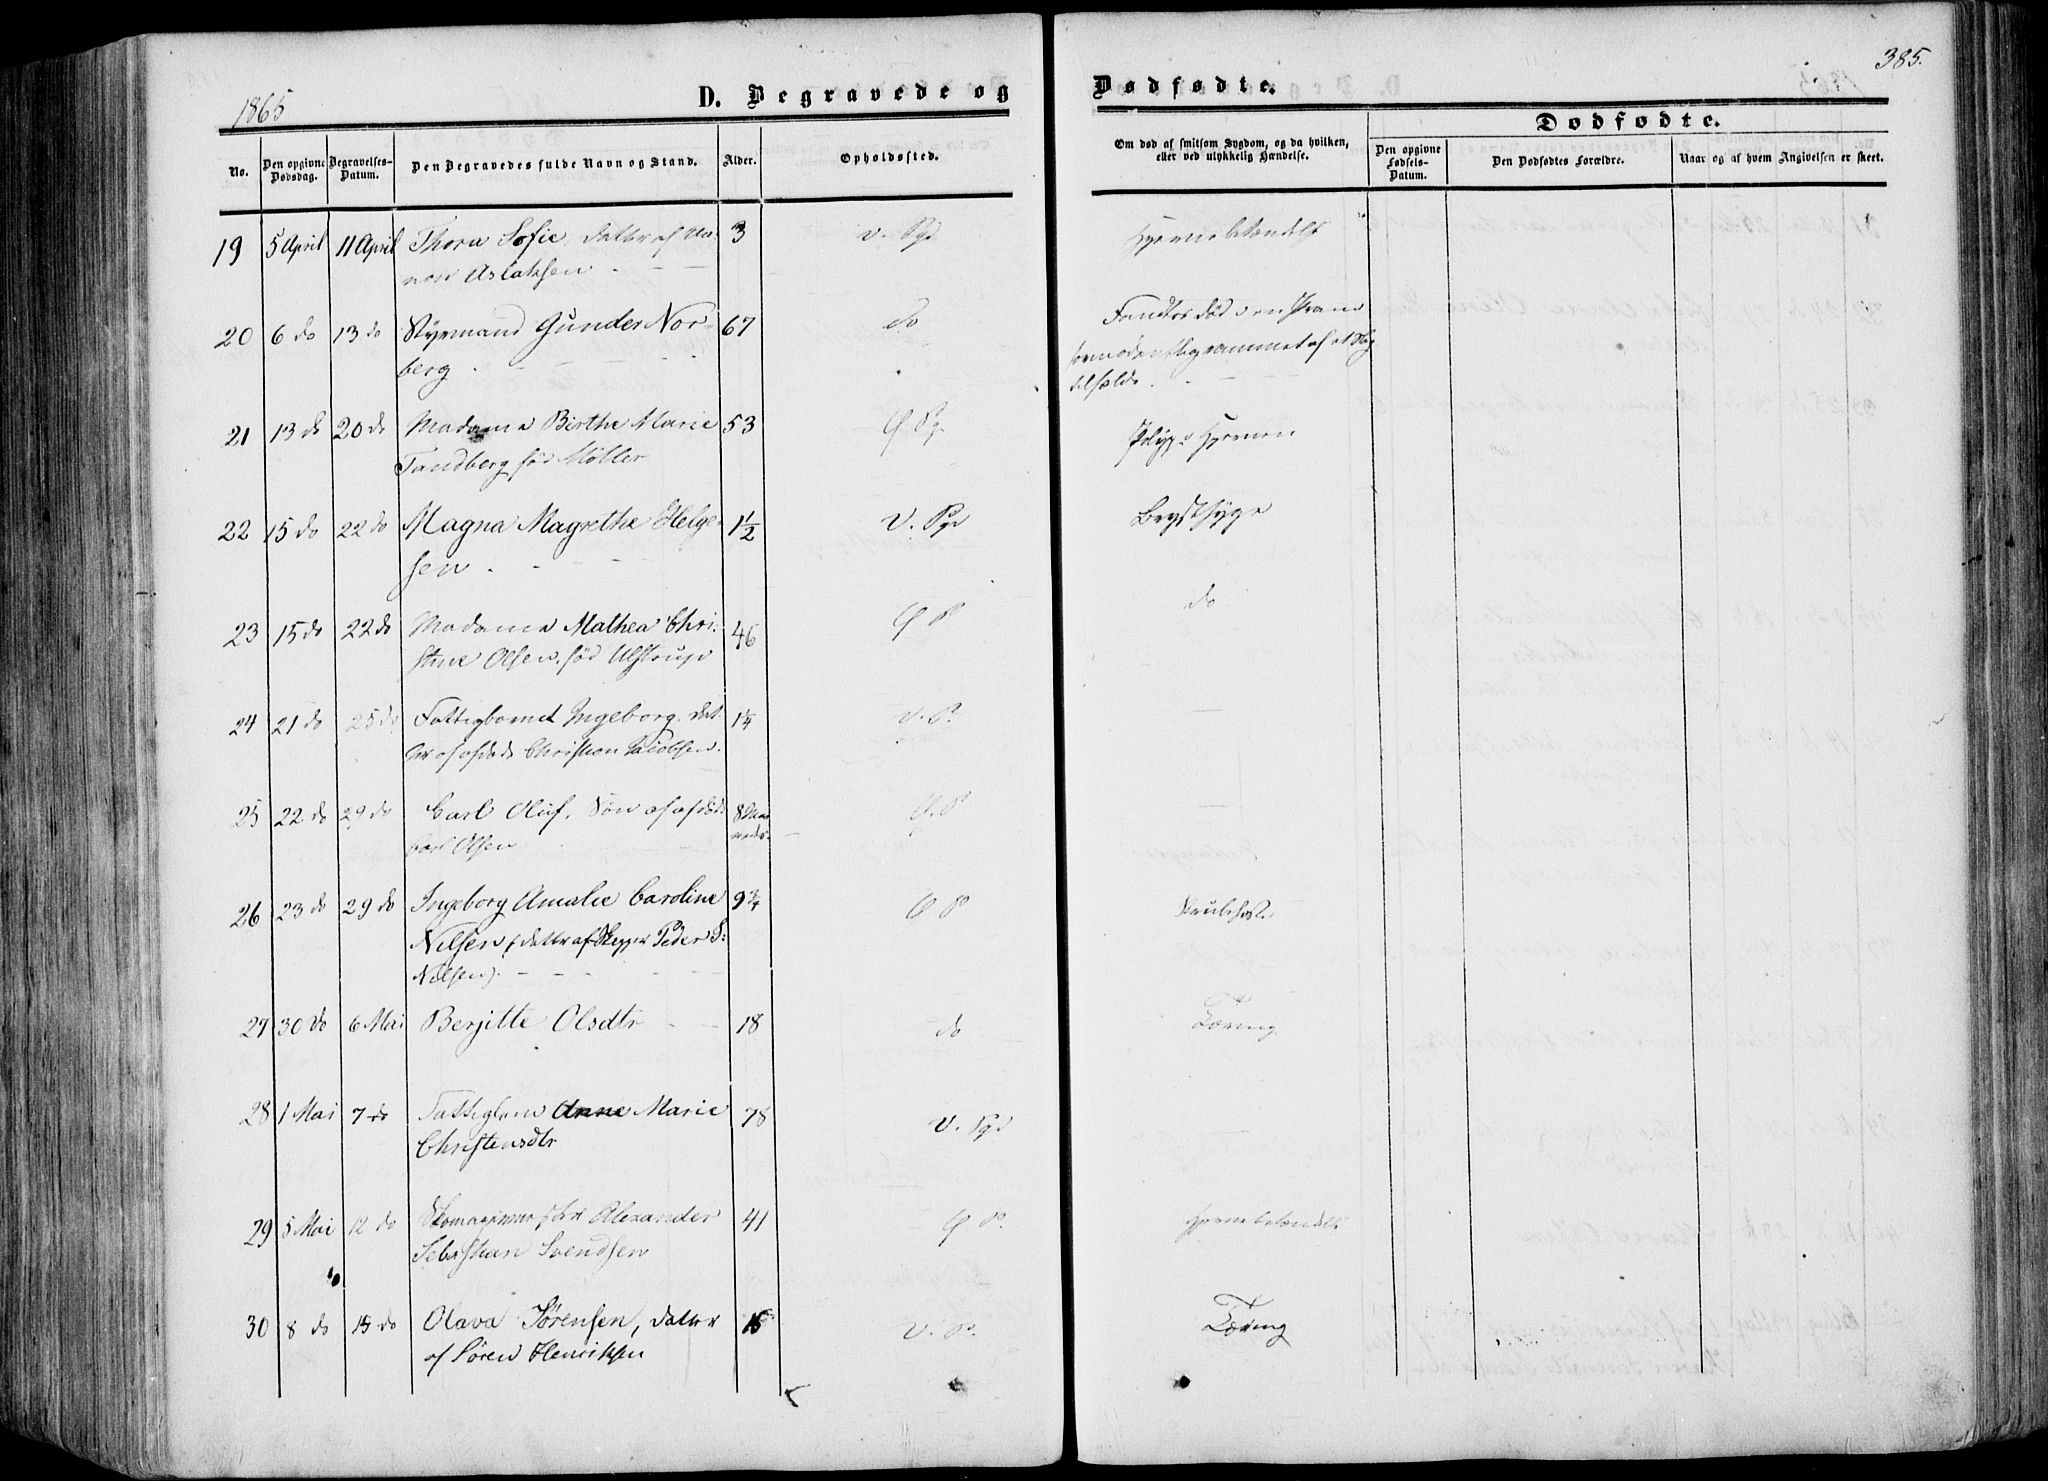 1865
D. Begravede og Dødfødte.
385.
No.
Den opgivne Dødsdag.
Begravelses-Datum.
Den Begravedes fulde Navn og Stand.
Alder.
Opholdssted.
Om død af smitsom Sygdom, og da hvilken, eller ved ulykkelig Hændelse.
Dødfødte.
Den opgivne Fødsels-Datum.
Den Dødfødtes Forældre.
Naar og af hvem Angivelsen er skeet.
19 5 April 11 April Thora Sofie, Datter af 3 V. Pgd Hjernebetændelse
Aslaksen
20 6 do 13 do Styrmand Gunder Nor- 67 do Fandtes død i en Pram
berg
21 13 do 20 do Madame Birthe Marie 53 Hjernen
Tandberg fød Møller
22 15 do 22 do Magna Magrethe Helge- 1½ V. Pgd Brystsyge
sen
23 15 do 22 do Madame Mathea Chri- 46 Ø P do
stine Olsen, fød Ulstrup
24 21 do 25 do Fattigbarnet Ingeborg, Dat- 1¼ V. P.
ter af afdøde Christian Jacobsen.
25 22 do 29 do Carl Oluf, Søn af afdøde 8 Maa- Ø. P
Carl Olsen neder
26 23 do 29 do Ingeborg Amalie Caroline 9¾ Ø P Strubehoste
Nilsen (Datter af Skipper Peder S:
Nilsen).
27 30 do 6 Mai Berjitte Olsdtr 18 do Tæring
28 1 Mai 7 do Fattiglem Anne Marie 78 V. Pgd
Christensdtr
29 5 Mai 12 do Skomagermester Alexander 41 Ø P. Hjernebetændelse
Sebastian Svendsen
30 8 do 15 do Olava Sørensen, Datter V. P. Tæring
af Søren Henriksen